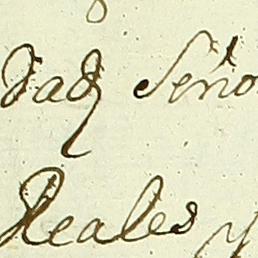 dad Seño
Reales y